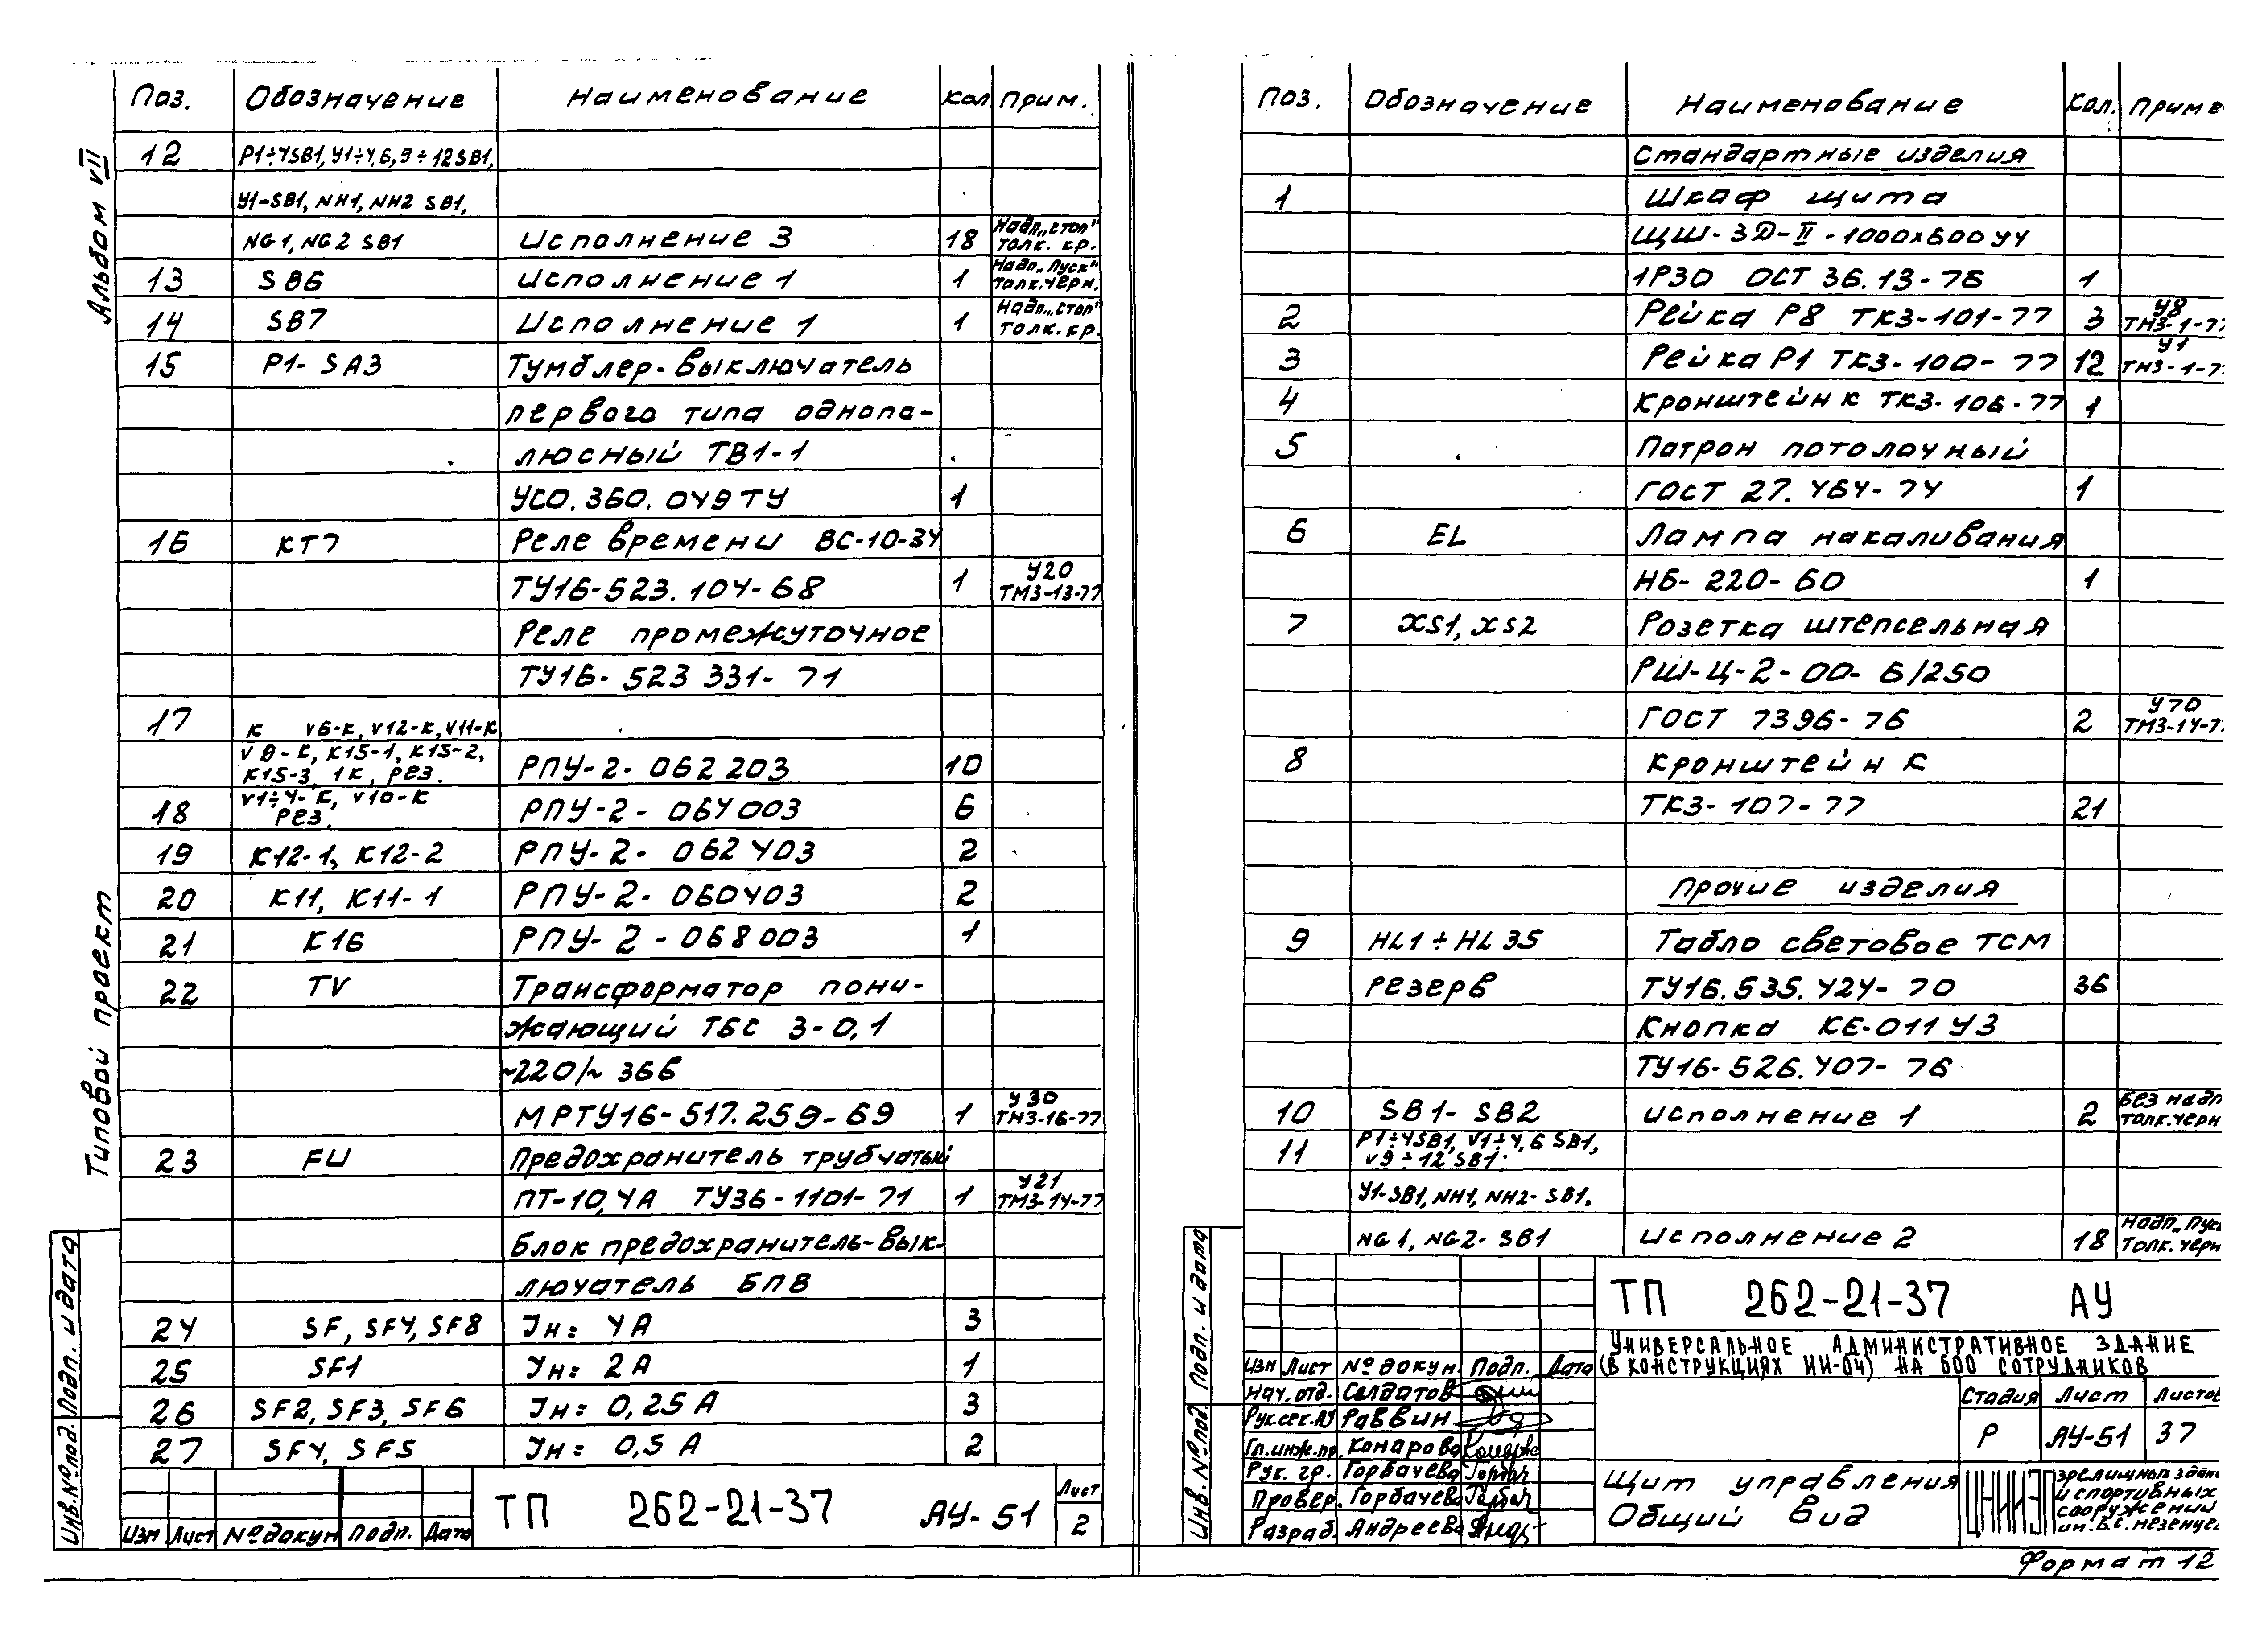 Альбом VII
Типовой проект
Инв.№подл. Подп. и дата
Поз. Обозначение Наименование Кол Прим.
12 Р1÷4SB1, У1÷4,6,9÷12SB1,
У1-SB1, NH1, NH2 SB1,
NG1, NG2 SB1 Исполнение 3 18 Надп. „стоп" толк. кр.
13 SB6 Исполнение 1 1 Надп. „Пуск" толк. черн.
14 SB7 Исполнение 1 1 Надп. „стоп" толк. кр.
15 Р1-SA3 Тумблер-выключатель
первого типа однопо-
люсный ТВ1-1
УСО.360.049ТУ 1
16 КТ7 Реле времени ВС-10-34
ТУ16-523.104-68 1 У20 ТМ3-13-77
Реле промежуточное
ТУ16-523 331-71
17 К V6-К, V12-К, V11-К
V9-К, К15-1, К15-2,
К15-3, 1К, рез. РПУ-2-062203 10
18 V1÷4-К, V10-К рез. РПУ-2-064003 6
19 К12-1, К12-2 РПУ-2-062403 2
20 К11, К11-1 РПУ-2-060403 2
21 К16 РПУ-2-068003 1
22 TV Трансформатор пони-
жающий ТБС 3-0,1
~220/~36в
МРТУ16-517.259-69 1 У30 ТМ3-16-77
23 FU Предохранитель трубчатый
ПТ-10,4А ТУ36-1101-71 1 У21 ТМ3-14-77
Блок предохранитель-вык-
лючатель БПВ
24 SF, SF4, SF8 Iн= 4А 3
25 SF1 Iн= 2А 1
26 SF2, SF3, SF6 Iн= 0,25А 3
27 SF4, SF5 Iн= 0,5 А 2
Изм Лист №докум Подп. Дата
ТП 262-21-37 АУ-51 Лист 2
Инв.№подл. Подп. и дата
Поз. Обозначение Наименование Кол. Приме
Стандартные изделия
1 Шкаф щита
ЩШ-3Д-II-1000х600У4
1Р30 ОСТ 36.13-76 1
2 Рейка Р8 ТК3-101-77 3 У8 ТМ3-1-77
3 Рейка Р1 ТК3-100-77 12 У1 ТМ3-1-7
4 Кронштейн К ТК3-106-77 1
5 Патрон потолочный
ГОСТ 27.464-74 1
6 EL Лампа накаливания
НБ-220-60 1
7 XS1, XS2 Розетка штепсельная
РШ-Ц-2-00-6/250
ГОСТ 7396-76 2 У70 ТМ3-14-7
8 Кронштейн К
ТК3-107-77 21
Прочие изделия
9 HL1÷HL35 Табло световое ТСМ
резерв ТУ16.535.424-70 36
Кнопка КЕ-011У3
ТУ16-526.407-76
10 SB1-SB2 исполнение 1 2 Без надп толк.черн
11 Р1÷4SB1, V1÷4,6 SB1,
V9÷12SB1.
У1-SB1, NH1, NH2-SB1,
NG1, NG2-SB1 исполнение 2 18 Надп. „Пуск Толк. черн
ТП 262-21-37 АУ
Универсальное административное здание
(в конструкциях ИИ-04) на 600 сотрудников
Изм Лист №докум. Подп. Дата
Нач.отд. Солдатов
Рук.сек.АУ Раввин
Гл.инж.пр. Комарова
Рук. гр. Горбачева
Провер. Горбачева
Разраб. Андреева
Стадия Лист Листов
Р АУ-51 37
Щит управления
Общий вид
ЦНИИЭП
зрелищных здан
и спортивных
сооружений
им. Б.С. Мезенце
Формат 12